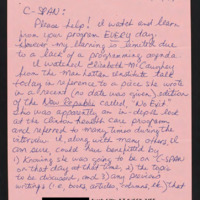 "C-SPAN:
Please help! I watch and learn
from your program EVERY day.
However my learning is limited due
to a lack of a programming agenda.
I watched Elizabeth McCaughey
from the Manhattan Institute talk
today in reference to a piece she wrote
in a recent (no date was given) edition
of the New Republic called, "No Exit"
who was apparently an in-depth look
at the Clinton health care program
and referred to many times during the
interview. I, along with many others, I
am sure, could have benefitted by
1) Knowing she was going to be on C-SPAN
on that day at that time, 2) the topic
to be discussed, and 3) any previous
writings (i.e., books, articles, columns, etc.) that